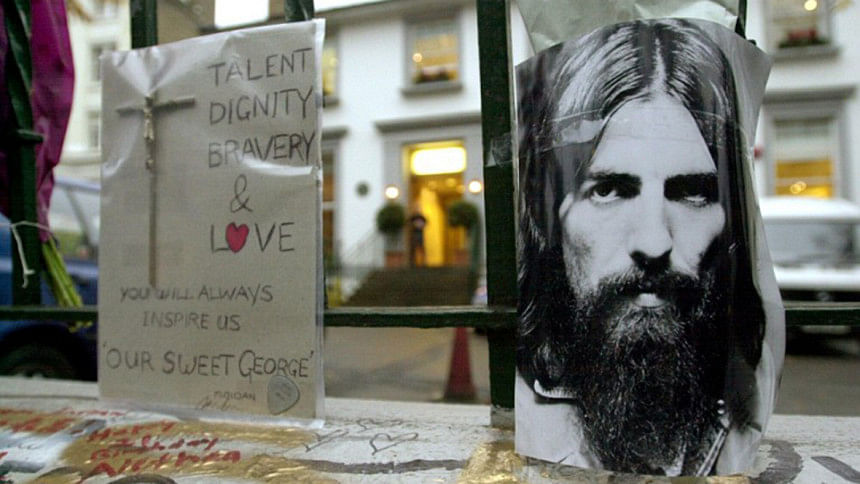 TALENT
DIGNITY
BRAVERY
&
LOVE
YOU WILL ALWAYS
INSPIRE US
'OUR SWEET GEORGE'
Happy
Birthday